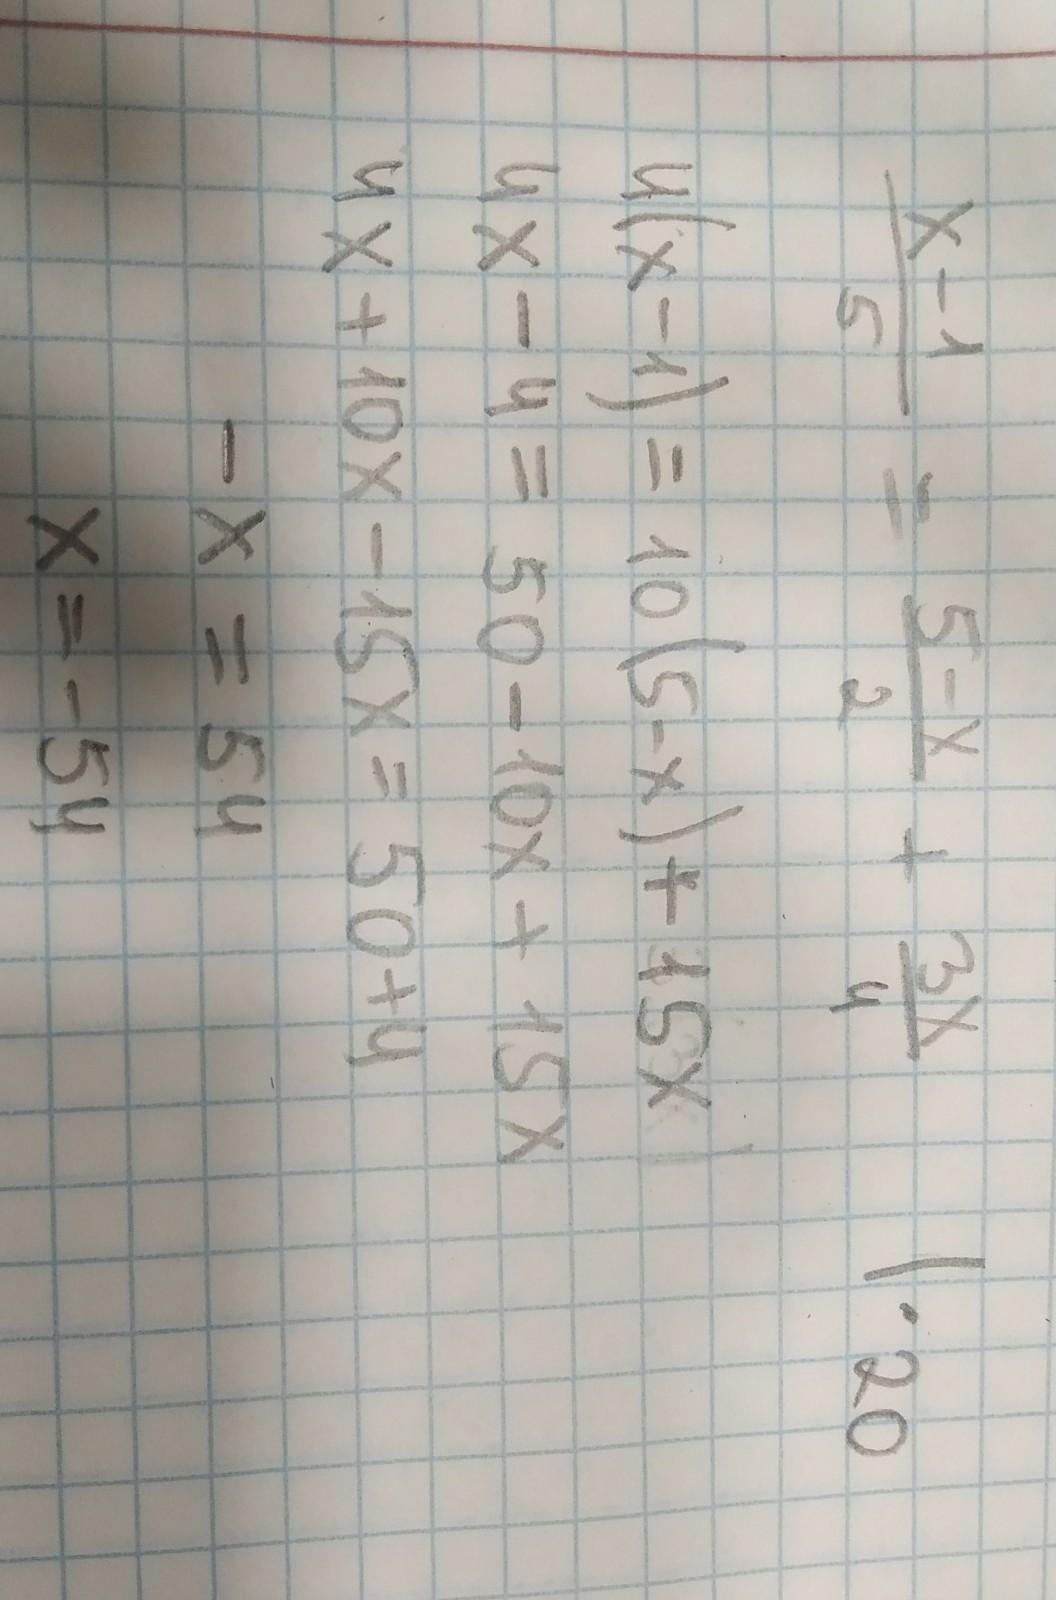 x-1/5 = 5-x/2 + 3x/4 |·20
4(x-1) = 10(5-x)+15x
4x-4 = 50-10x+15x
4x+10x-15x = 50+4
-x = 54
x = -54